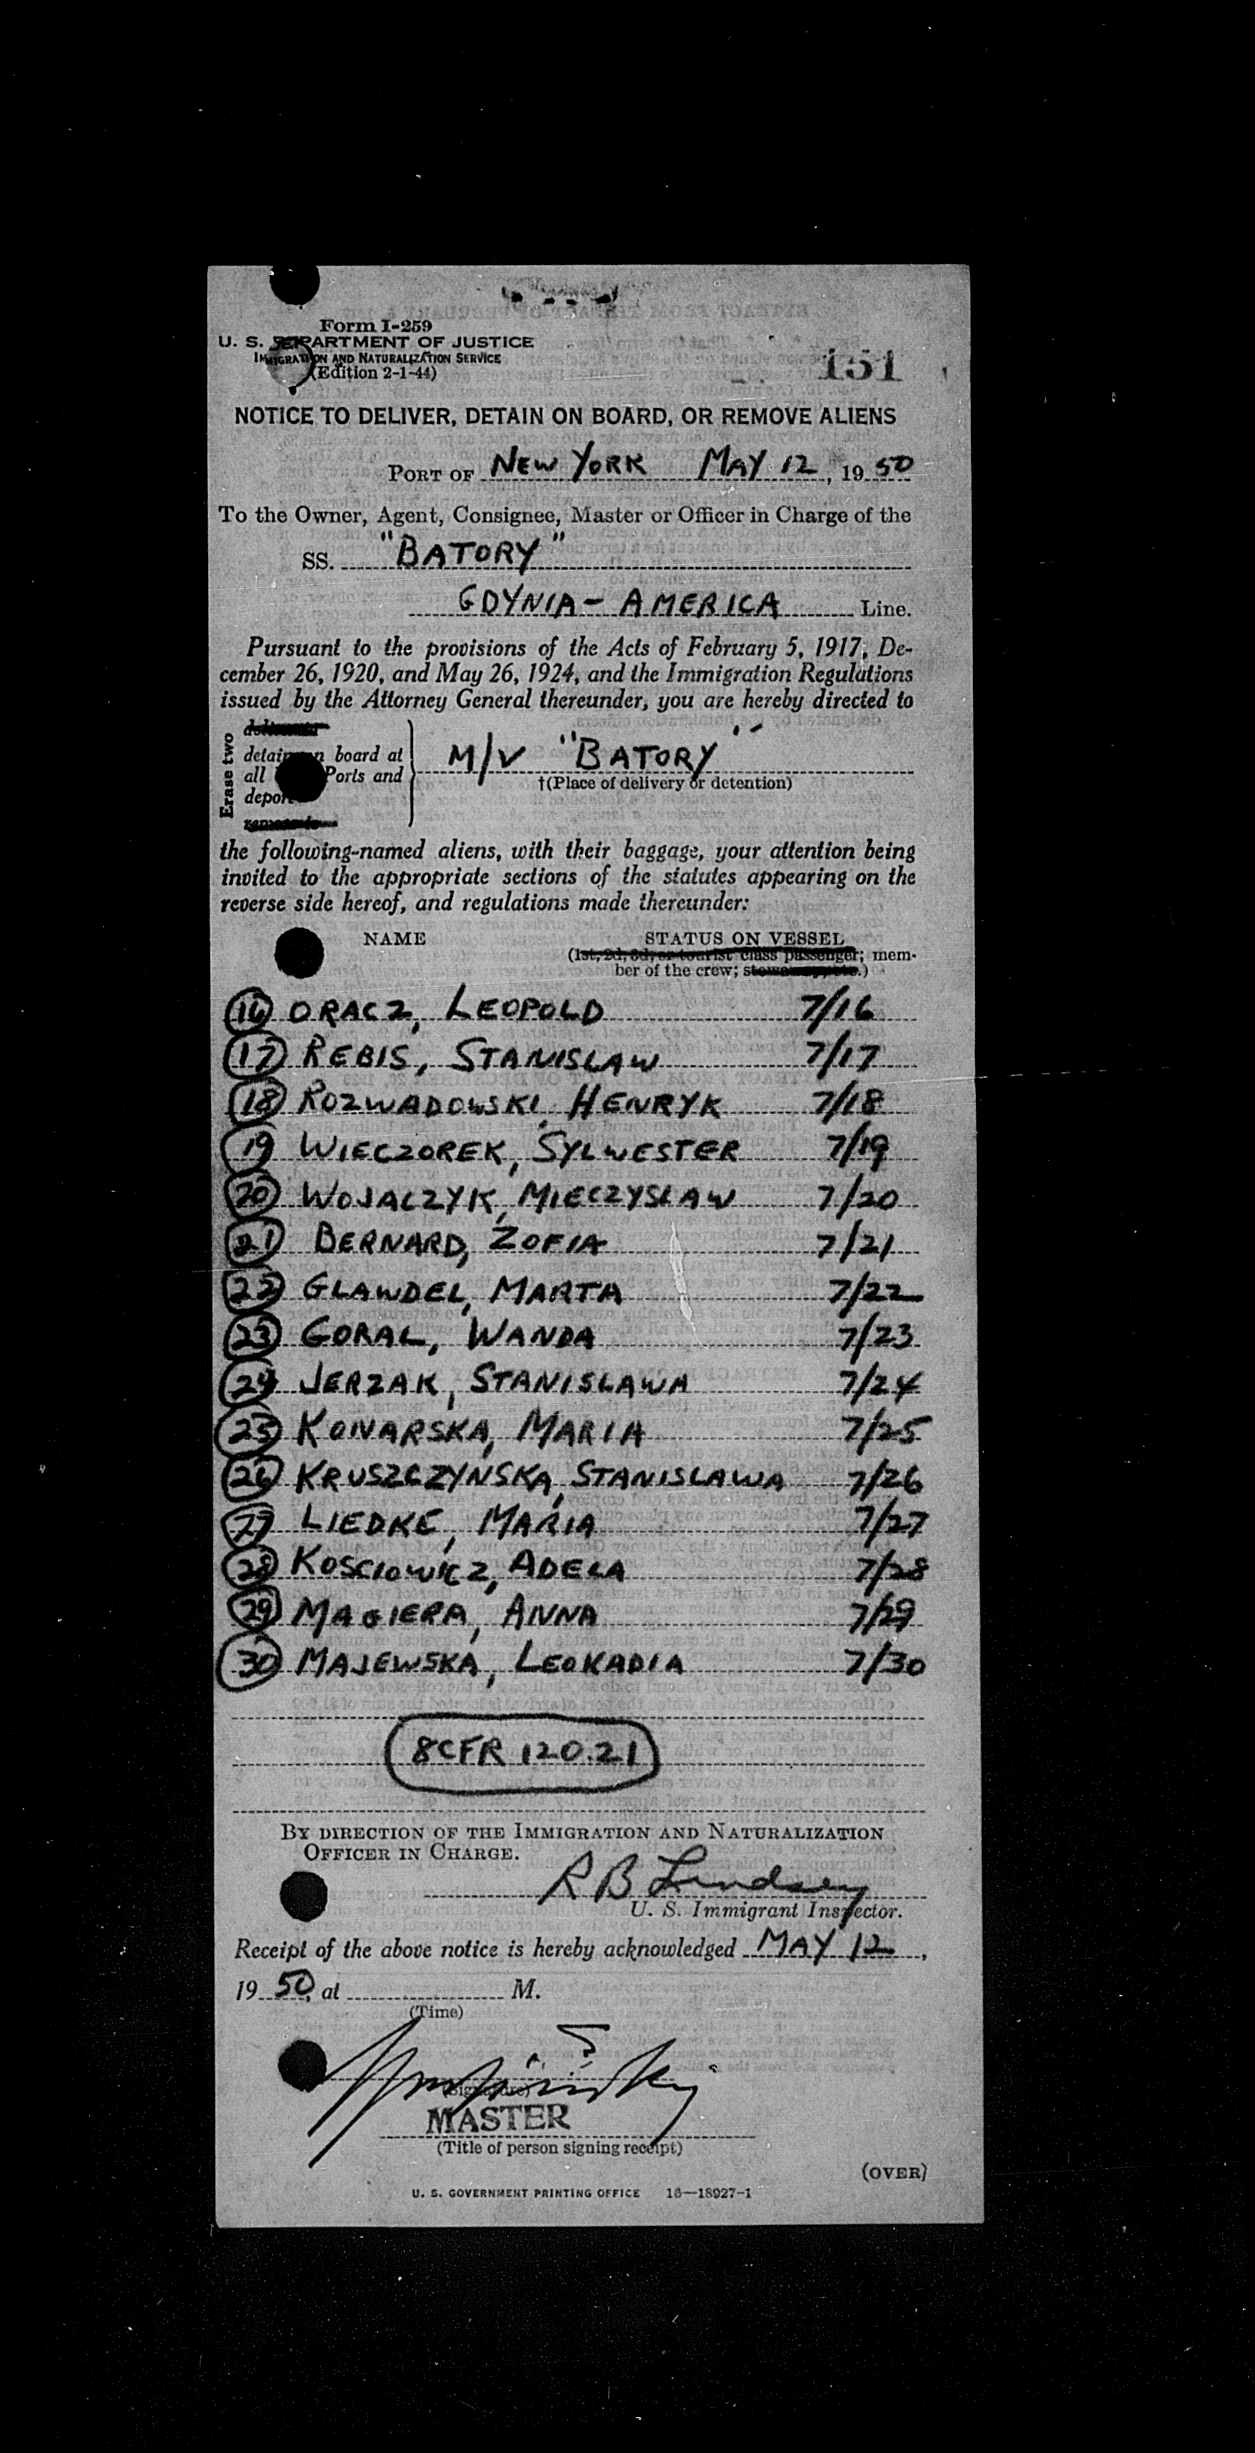 Form I-259
U. S. DEPARTMENT OF JUSTICE
IMMIGRATION AND NATURALIZATION SERVICE
(Edition 2-1-44)
151
NOTICE TO DELIVER, DETAIN ON BOARD, OR REMOVE ALIENS
PORT OF NEW YORK MAY 12, 19 50
To the Owner, Agent, Consignee, Master or Officer in Charge of the
SS. "BATORY"
GDYNIA - AMERICA Line.
Pursuant to the provisions of the Acts of February 5, 1917, De-
cember 26, 1920, and May 26, 1924, and the Immigration Regulations
issued by the Attorney General thereunder, you are hereby directed to
Erase two
detain on board at
all Ports and
deport
M/V "BATORY"
†(Place of delivery or detention)
the following-named aliens, with their baggage, your attention being
invited to the appropriate sections of the statutes appearing on the
reverse side hereof, and regulations made thereunder:
NAME STATUS ON VESSEL
(1st, 2d, 3d, or tourist class passenger; mem-
ber of the crew; stowaway, etc.)
16 ORACZ, LEOPOLD 7/16
17 REBIS, STANISLAW 7/17
18 ROZWADOWSKI, HENRYK 7/18
19 WIECZOREK, SYLWESTER 7/19
20 WOJACZYK, MIECZYSLAW 7/20
21 BERNARD, ZOFIA 7/21
22 GLAWDEL, MARTA 7/22
23 GORAL, WANDA 7/23
24 JERZAK, STANISLAWA 7/24
25 KONARSKA, MARIA 7/25
26 KRUSZCZYNSKA, STANISLAWA 7/26
27 LIEDKE, MARIA 7/27
28 KOSCIOWICZ, ADELA 7/28
29 MAGIERA, ANNA 7/29
30 MAJEWSKA, LEOKADIA 7/30
8CFR 120.21
BY DIRECTION OF THE IMMIGRATION AND NATURALIZATION
OFFICER IN CHARGE.
R B Lindsey
U. S. Immigrant Inspector.
Receipt of the above notice is hereby acknowledged MAY 12,
19 50, at M.
(Time)
(Signature)
MASTER
(Title of person signing receipt)
(OVER)
U. S. GOVERNMENT PRINTING OFFICE 16—18927-1